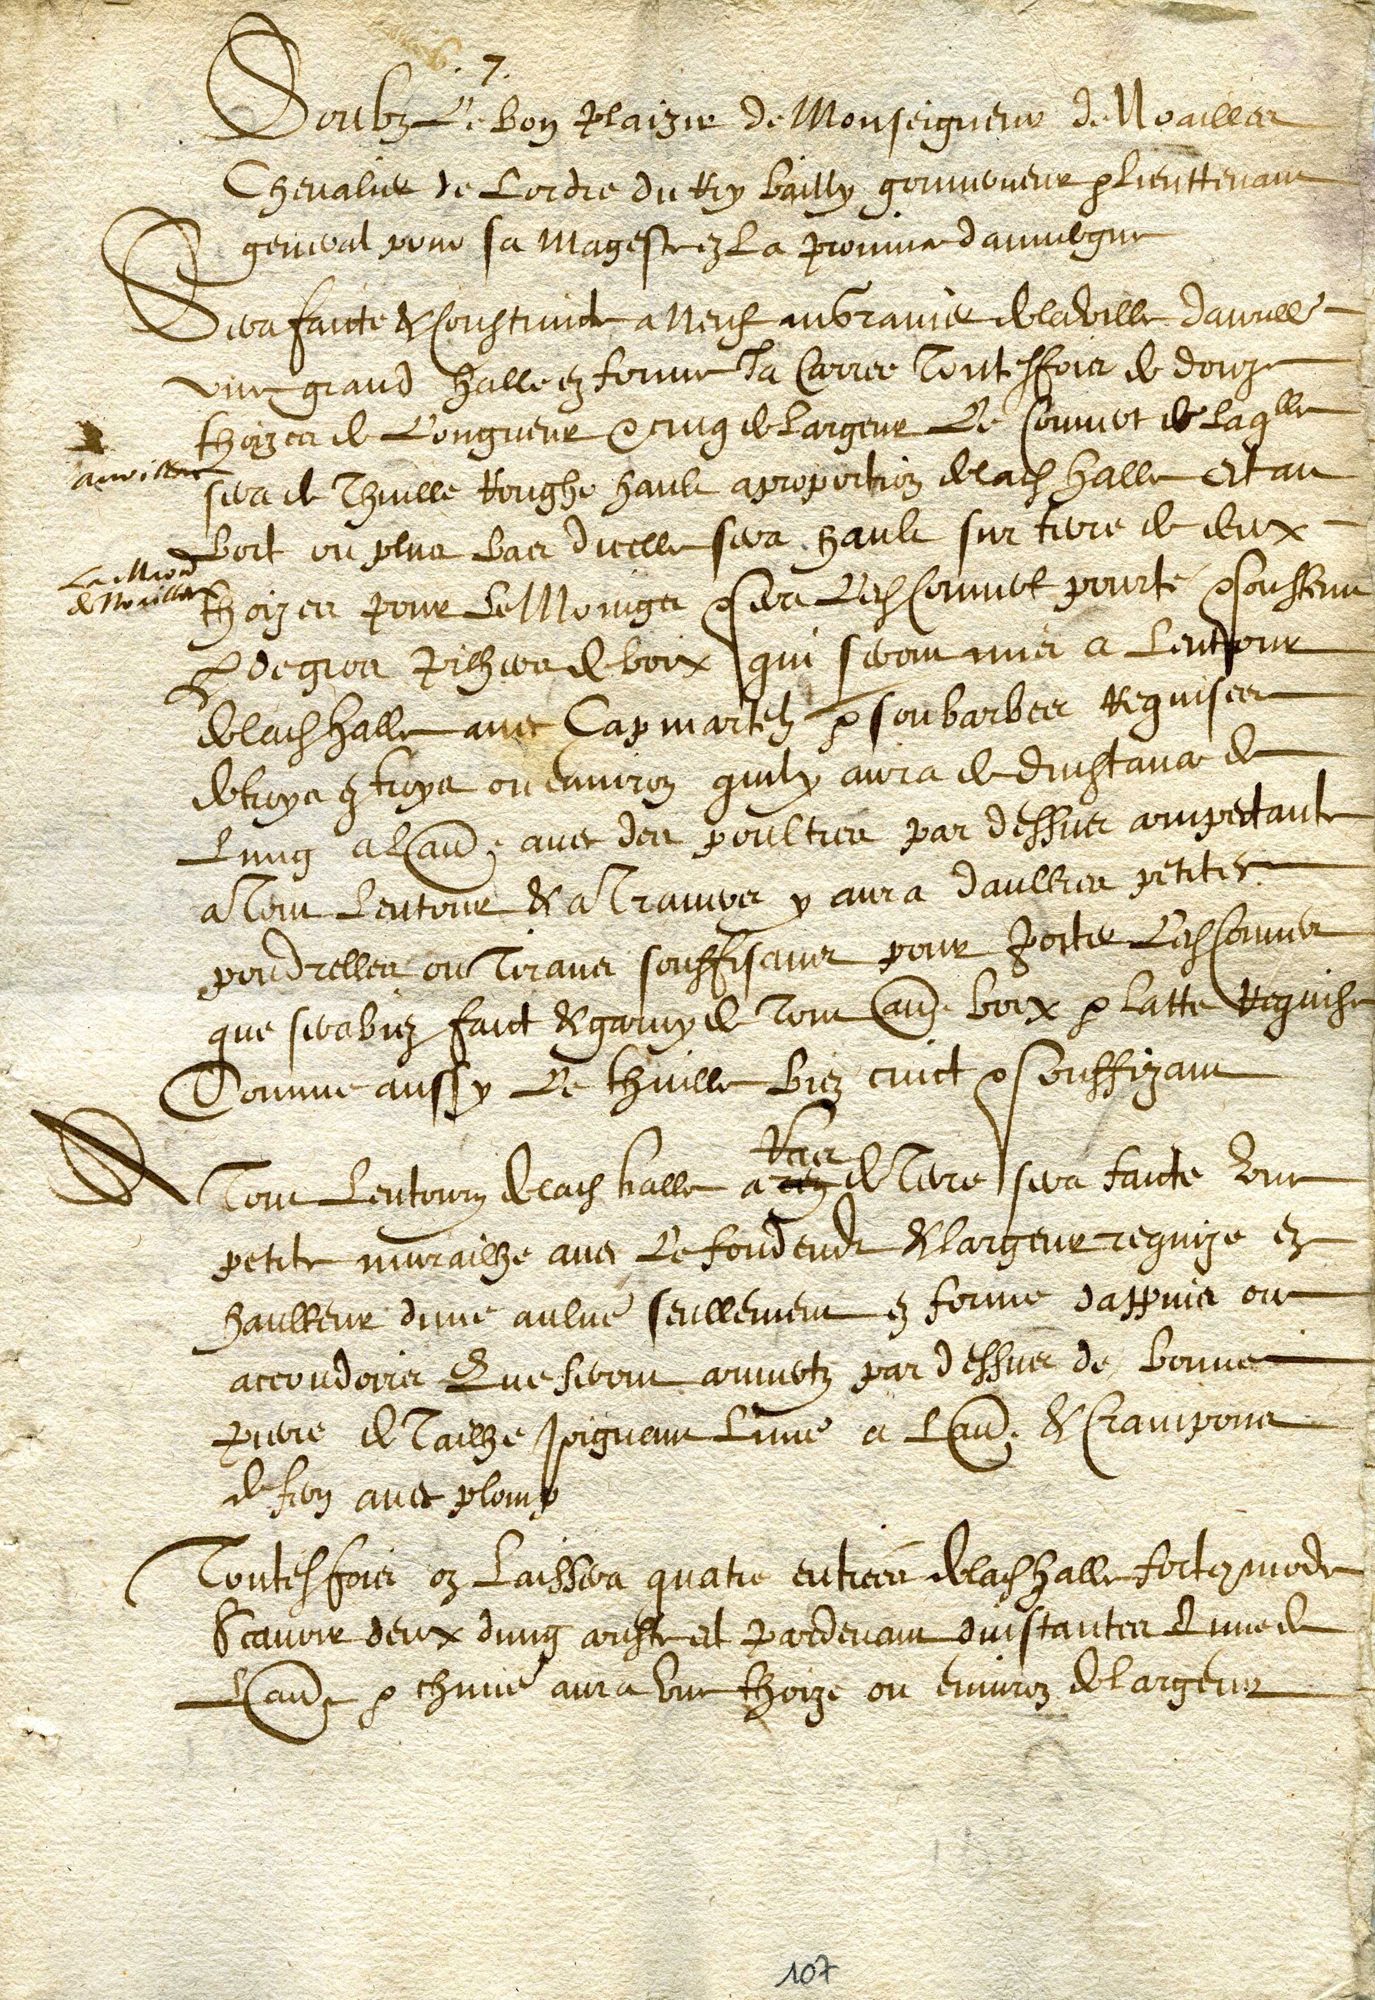 .7.
Soubz Le bon plaizir de Monseigneur de Noailles
Chevalier de Lordre du Roy bailly gouverneur & lieuttenant
general pour sa Mageste en La province dauvergne
Sera faicte & Construicte a Neuf au Gravier de la ville daurilhe
une grand halle en forme Carree Toutesfois de douze
thoizes de Longueur & cinq de Largeur Le Couvert de Laqlle
aurillac
sera de Thuille Roughe hault a proportion de lad halle Et au
bort ou plus bas dicelle sera hault sur terre de deux
de Noailles
thoizes pour Le Moingz & sera Led Couvert pourte & soustenu
de gros pilhers de boix qui seront mis a Lentour
de lad halle avec Capmartelz & soubarbes Requises
de troys en troys ou environ quily aura de dinstance de
Lung a Lau. avec des poultres par dessus
a Tout Lentour & a Travers y aura daultres petites
poudrelles ou Tirans souffisans pour porter Led Couvert
que sera bien faict & garny de Tout au. boix & latte Requise
Comme aussy Le thuille bien cuict & souffizant
Raes
A Tout Lentourn de lad halle a de Terre sera faicte Une
petite murailhe avec Le fondend & largeur requize en
haulteur dune aulne seullement en forme dappuis ou
accoudoirs Que seront couvertz par dessus de bonne
pierre de Tailhe Joignant Lune a Lau. & Crampons
de fert avec plomp
Toutesfois on Laissera quatre entrees de lad halle
Scavoir deux dung couste et pardevant dinstantes Lune de
Lau. & chune aura une thoize ou environ de largeur
107